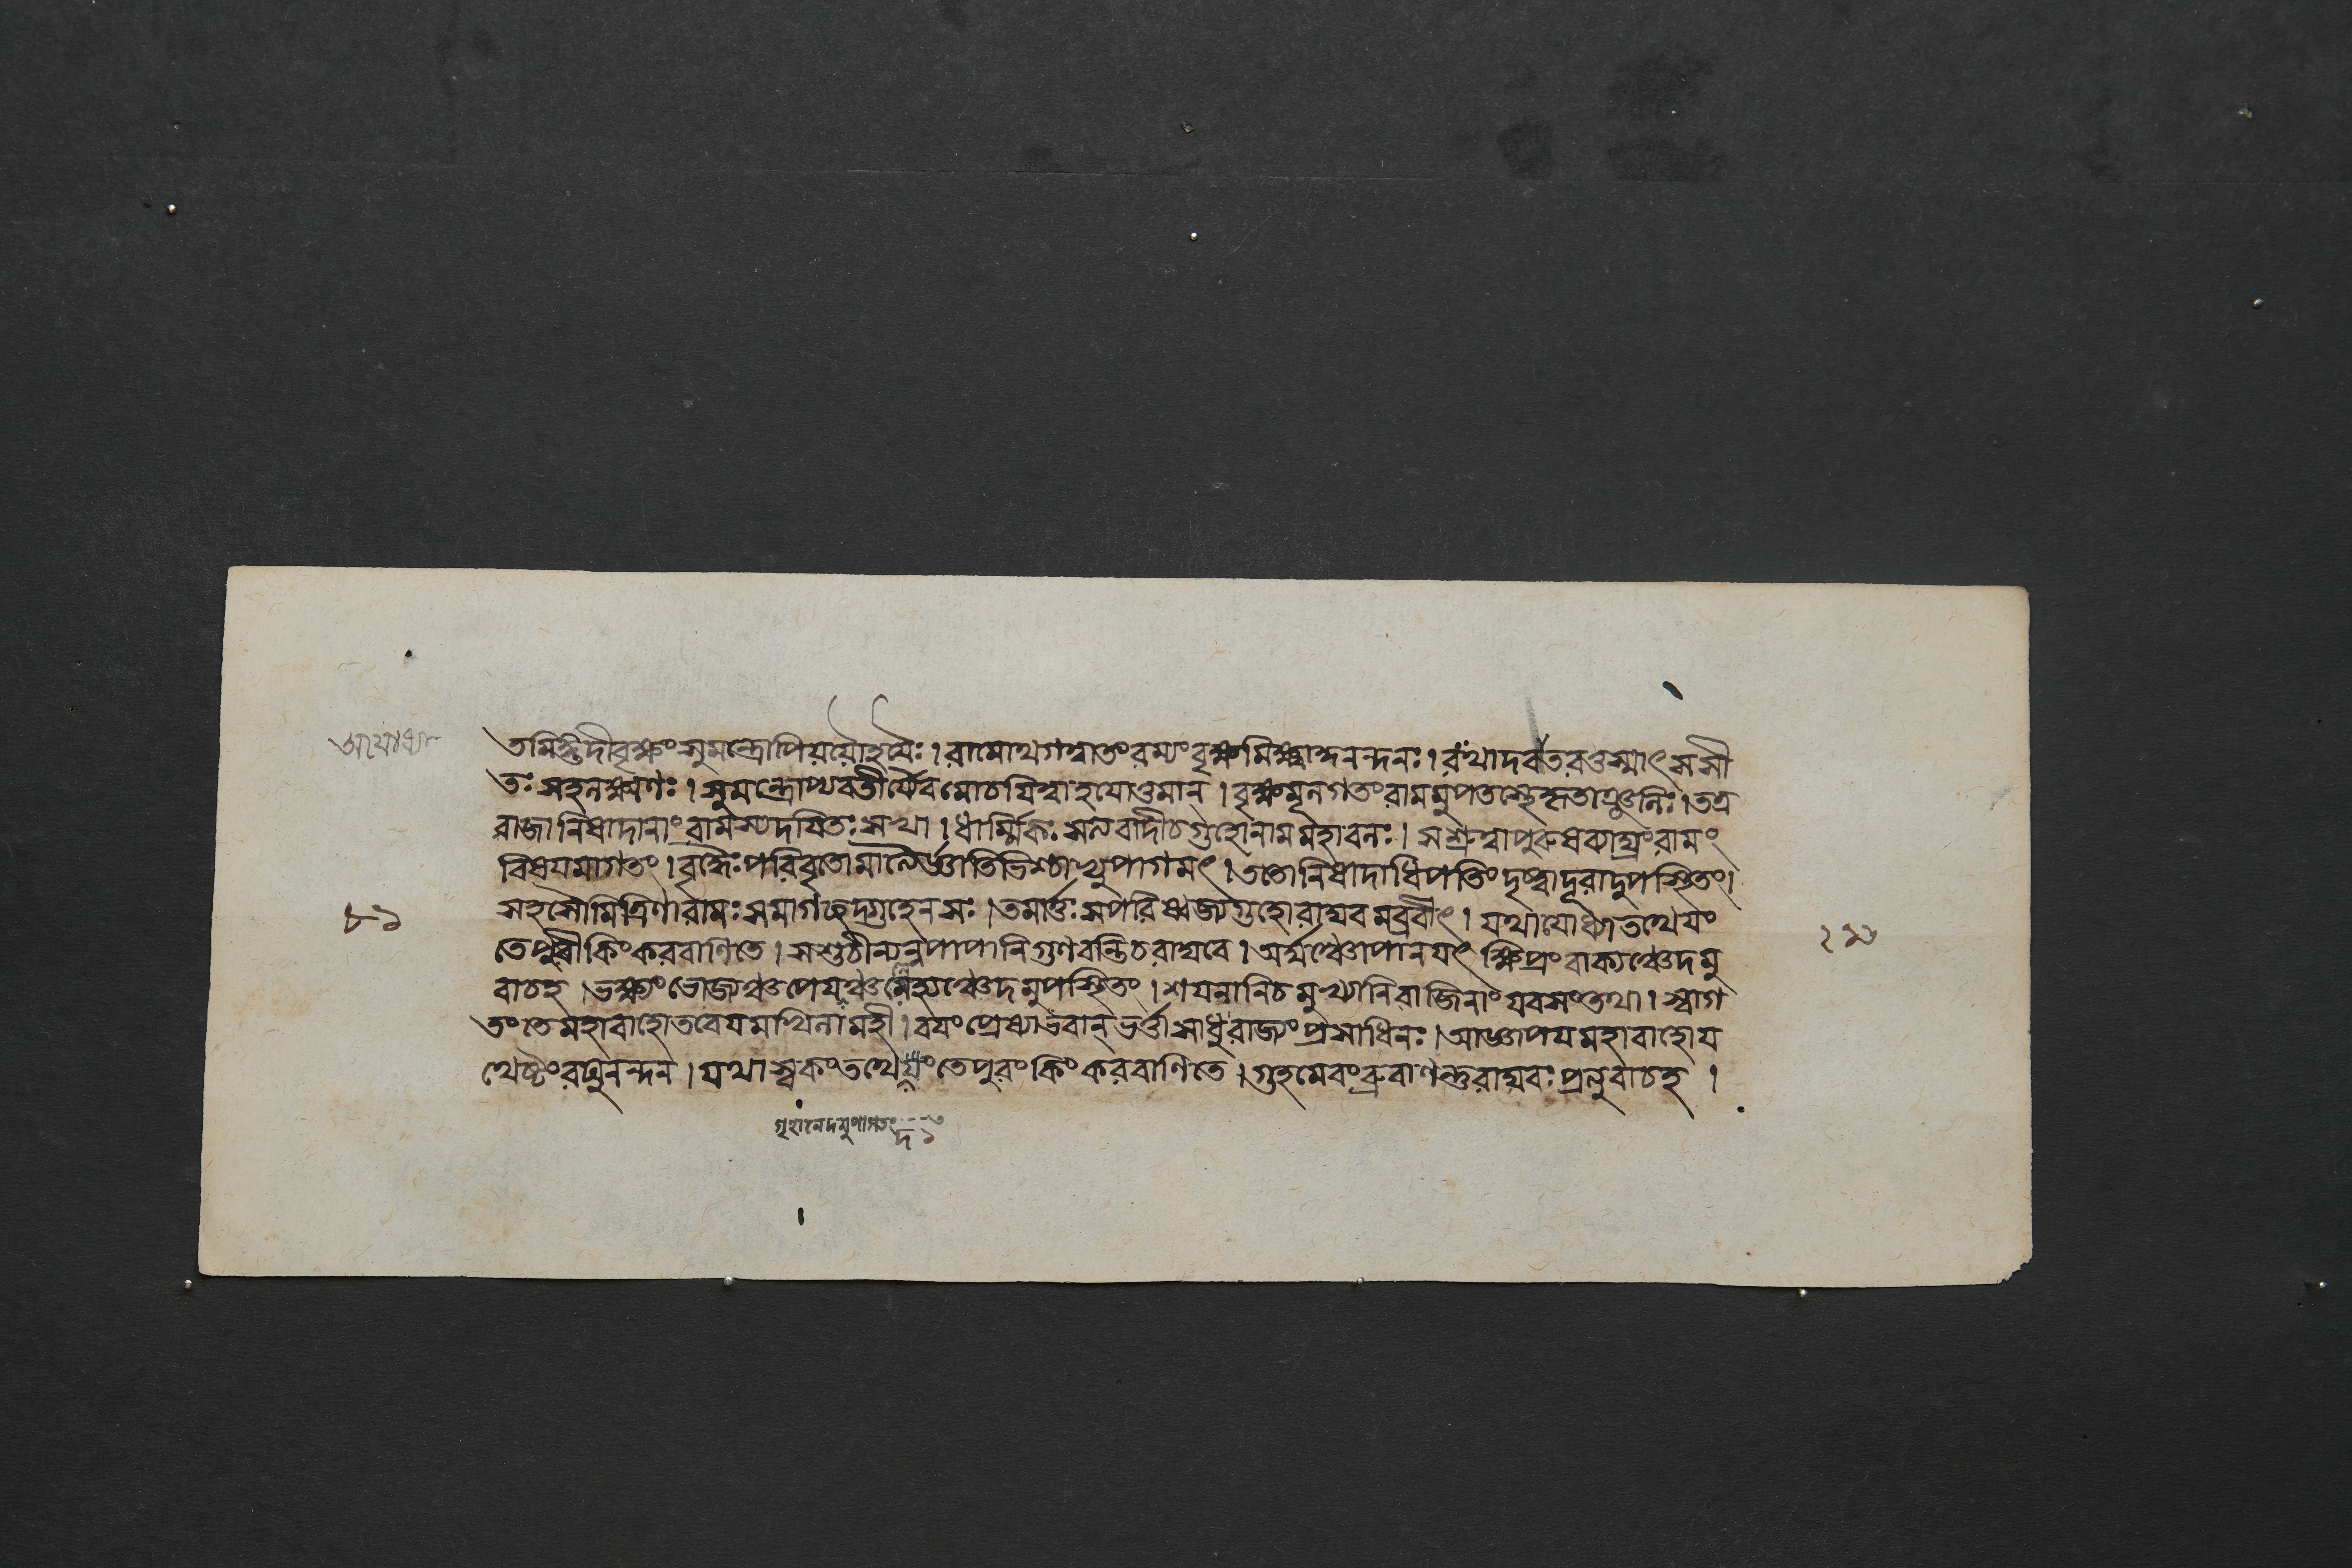 তমিঙ্গুদীবৃক্ষং সুমন্ত্রোপি যযৌ হযৈঃ । রামোথ গত্বা তং রম্যং বৃক্ষমিক্ষ্বাকুনন্দনঃ । রথাদবতরত্তস্মাৎ সসী
তঃ সহলক্ষ্মণঃ । সুমন্ত্রোপ্যবতীর্য্যৈব মোচযিত্বা হযোত্তমান্ । বৃক্ষমূলগতং রামমুপতস্থে কৃতাঞ্জলিঃ । তত্র
রাজা নিষাদানাং রামস্য দযিতঃ সখা । ধার্ম্মিকঃ সত্যবাদী চ গুহো নাম মহাবলঃ । স শ্রুত্বা পুরুষব্যাঘ্রং রামং
বিষযমাগতং । বৃদ্ধৈঃ পরিবৃতোমাত্যৈর্জ্ঞাতিভিশ্চাভ্যুপাগমৎ । ততো নিষাদাধিপতিং দৃষ্ট্বা দূরাদুপস্থিতং ।
সহ সৌমিত্রিণা রামঃ সমাগচ্ছদ্গুহেন সঃ । তমার্ত্তঃ সংপরিষ্বজ্য গুহো রাঘবমব্রবীৎ । যথাযোধ্যা তথেযং
তে পুরী কিং করবাণি তে । স শুচীন্যন্নপাপানি গুণবন্তি চ রাঘবে । অর্ঘ্যঞ্চোপানযৎ ক্ষিপ্রং বাক্যঞ্চেদমু
বাচ হ । ভক্ষ্যং ভোজ্যঞ্চ পেযঞ্চ লেহ্যঞ্চেদমুপস্থিতং । শযনানি চ মুখ্যানি বাজিনাং যবসং তথা । স্বাগ
তং তে মহাবাহো তবেযমখিলা মহী । বযং প্রেষ্যা ভবান্ ভর্ত্তা সাধু রাজ্যং প্রসাধি নঃ । আজ্ঞাপয মহাবাহো য
থেষ্টং রঘুনন্দন । যথা স্বকং তথেযং তে পুরং কিং করবাণি তে । গুহমেবং ব্রুবাণন্তু রাঘবঃ প্রত্যুবাচ হ ।
৮১